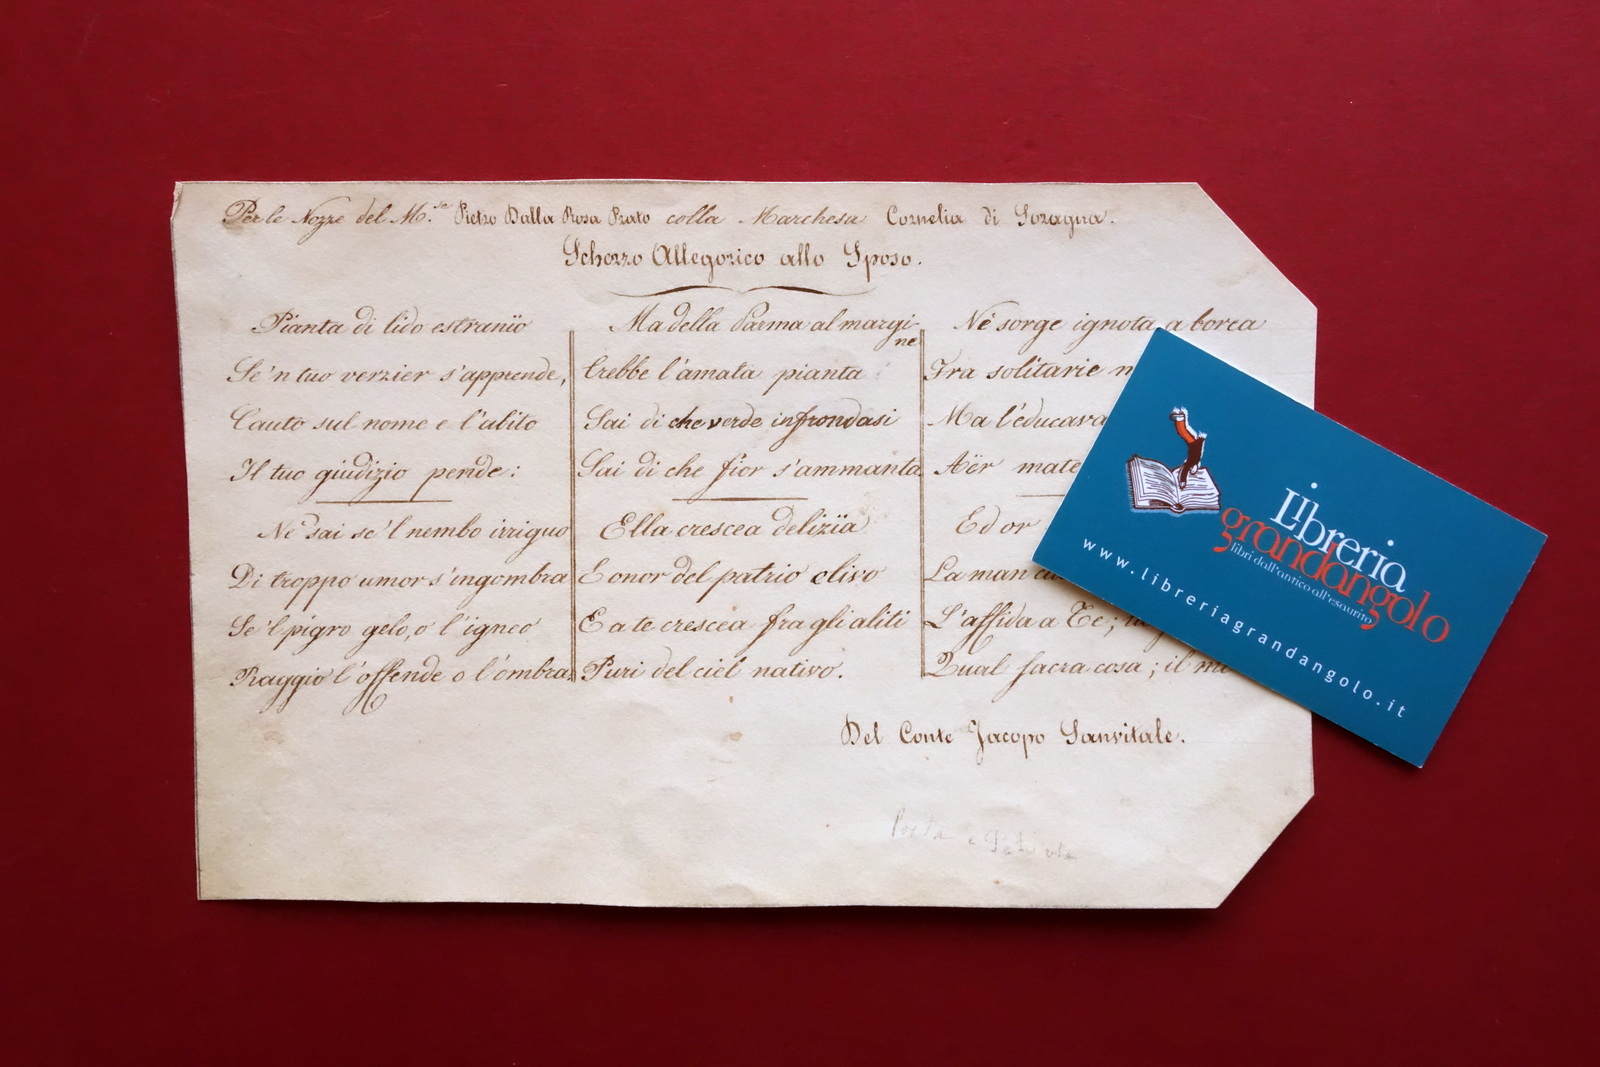 Per le Nozze del M.se Pietro Dalla Rosa Prato colla Marchesa Cornelia di Soragna.
Scherzo Allegorico allo Sposo.
Pianta di lido estranïo
Se'n tuo verzier s'apprende,
Cauto sul nome e l'alito
Il tuo giudizio pende:
Nè sai se'l nembo irriguo
Di troppo umor s'ingombra
Se'l pigro gelo, o l'igneo
Raggio l'offende o l'ombra
Ma della Parma al margi
ne
Crebbe l'amata pianta
Sai di che verde infrondasi
Sai di che fior s'ammanta
Ella crescea delizïa
E onor del patrio clivo
E a te crescea fra gli aliti
Puri del ciel nativo.
Nè sorge ignota a borea
Fra solitarie
Ma l'educava
Aër
Ed or
La man
L'affida a Te;
Qual sacra cosa; il
Del Conte Jacopo Sanvitale.
Poeta e
Libreria
grandangolo
libri dall'antico all'esaurito
www.libreriagrandangolo.it